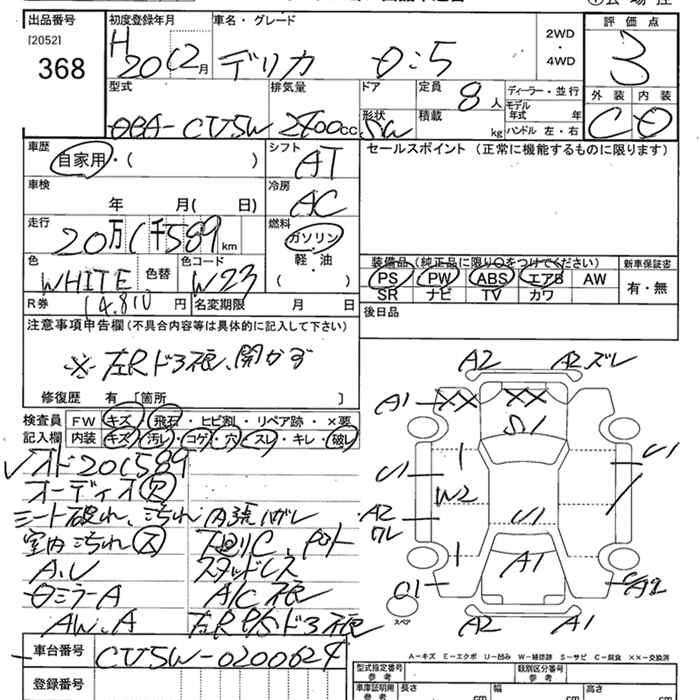 出品番号
[2052]
368
初度登録年月
H 20 (2月
車名・グレード
デリカ D:5
2WD
・
4WD
評価点
3
外装 内装
C D
型式
DBA-CV5W
排気量
2400cc
ドア
形状
5W
定員
8人
積載
kg
ディーラー・並行
モデル年式 年
ハンドル 左・右
車歴
自家用・( )
シフト
AT
セールスポイント (正常に機能するものに限ります)
車検
年 月( 日)
冷房
AC
走行
20万(千589km
燃料
ガソリン
軽・油
( )
色
WHITE
色替
色コード
W23
装備品(純正品に限り○をつけてください)
PS PW ABS エアB AW
SR ナビ TV カワ
新車保証書
有・無
R券 14.810円
名変期限 月 日
後日品
注意事項申告欄(不具合内容等は具体的に記入して下さい)
※左Rドヨ視、開かず
修復歴 有〔箇所 〕
検査員記入欄
FW キズ・飛石・ヒビ割・リペア跡・×要
内装 キズ・汚レ・コゲ・穴・スレ・キレ・破レ
オド20(589
オーディオ欠
シート破れ、汚れ 内張ハガレ
室内汚れ大 下廻りC、凹
A、U スタッドレス
Dミラ-A A/C
AW.A 左R P/Sドヨ
車台番号
CV5W-0200624
登録番号
A2 A2ズレ
A1 XX XX
S1
U1 U1
W2
A2
ワレ
U1
A1
O1
スペア
A2 A1
A2
A-キズ E-エクボ U-凹み W-補修跡 S-サビ C-腐食 ××-交換済
型式指定番号
参考
類別区分番号
参考
車庫証明用
参考
長さ cm
幅 cm
高さ cm